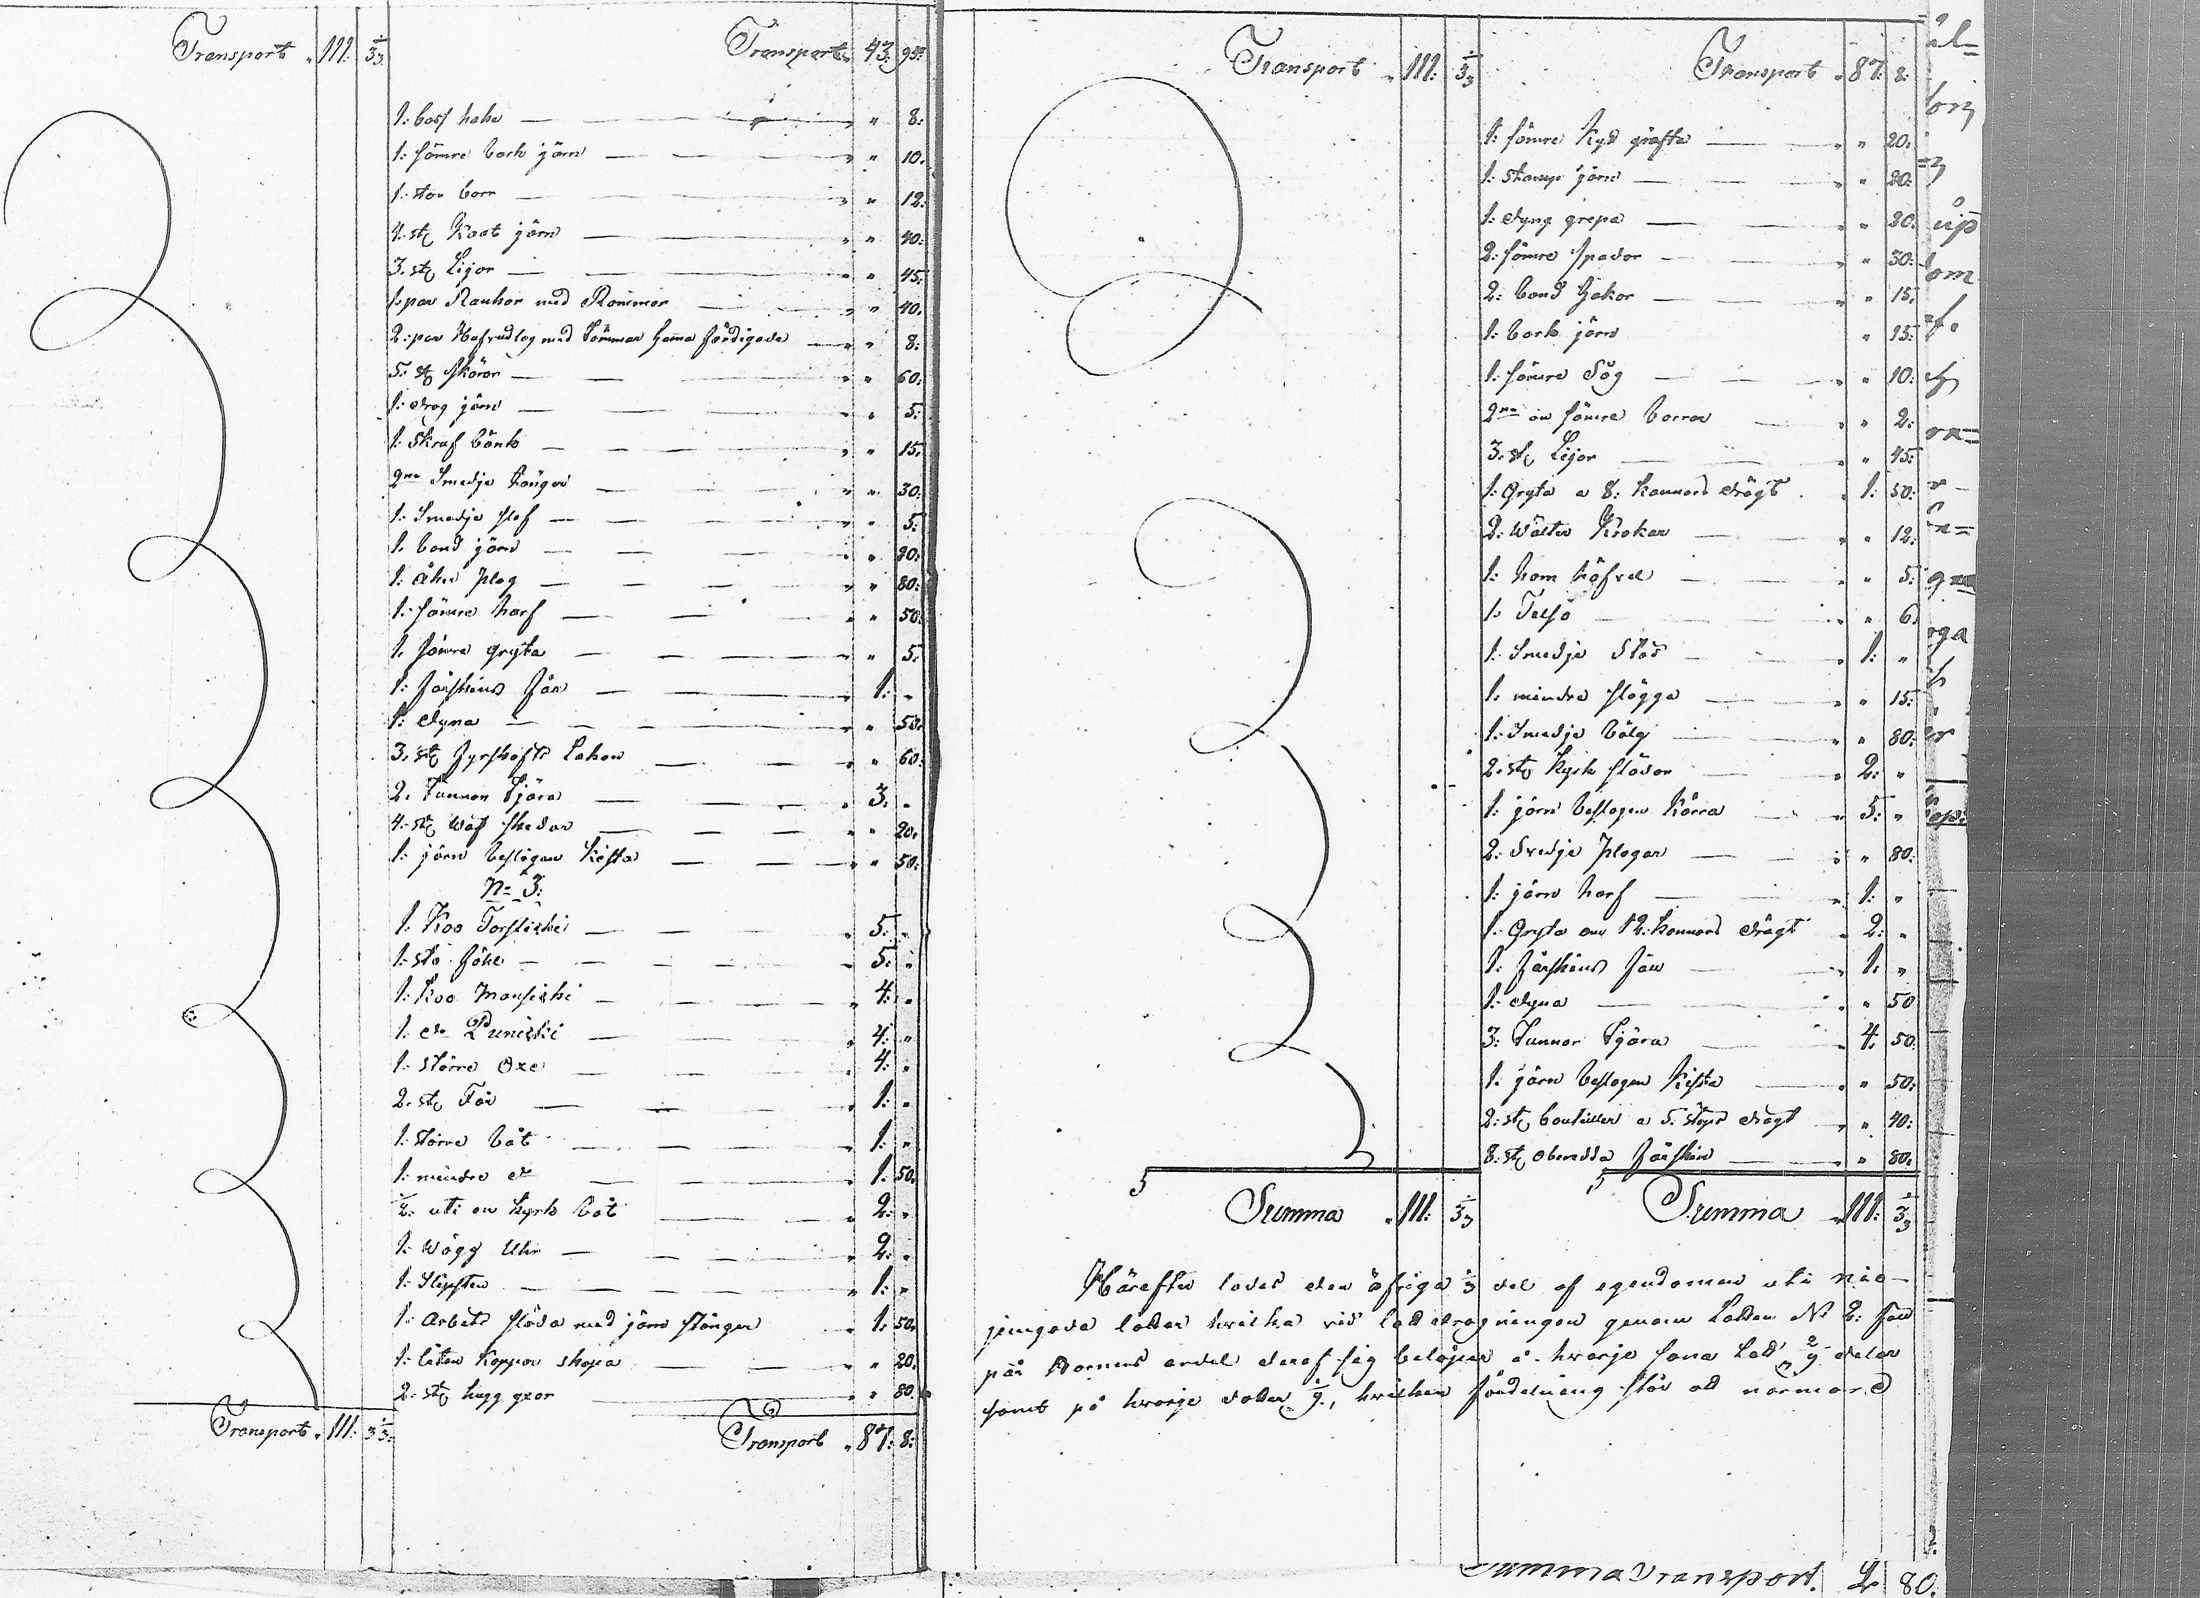 Transport „ 111: 3 1/3
Transport „ 43: 95:
1: bast hake „ „ 8:
1: sämre bark järn „ „ 10.
1: stor borr „ „ 12:
4: st. Knot järn „ „ 40:
3. st. Lijor „ „ 45:
1. par Rankor med Rommor „ „ 40.
2: par Hafvudlag med Tömmar „ „ 8:
5: st. skäror „ „ 60:
1: drag järn „ „ 5:
1: Skruf bänk „ „ 15.
2ne Smedje tänger „ „ 30:
1: Smedje „ „ 5:
1. band järn „ „ 20:
1: åker plog „ „ 80:
1: sämre harf „ „ 50.
1. sämre gryta „ „ 5:
1: fårskins fäll 1: „
1: dyna „ „ 50.
3. st. fyrskafts Lakan „ „ 60:
2. Tunnor Tjära „ 3. „
4: st. Wäf skedar „ „ 20.
1: järn beslagen Kista „ „ 50:
No 3:
1. Koo Torstikki „ 5: „
1: sto föhl 5: „
1: Koo Mansikki „ 4: „
1. do Puneikki „ 4: „
1: större Oxe „ 4: „
2. st. Får „ 1: „
1: större båt „ 1: „
1: mindre do „ 1. 50.
1/2: uti en kyrk båt „ 2: „
1: Wägg Uhr „ 2: „
1: Slipsten „ 1: „
1: Arbets släda med järn stänger 1. 50.
1: liten Koppar skopa „ „ 20.
2: st. hugg yxor „ „ 80.
Transport „ 111: 3 1/3:
Transport „ 87: 8:
Transport „ 111: 3 1/3
Transport „ 87: 8:
1: sämre Kyd gräfta „ „ 20.
1: stamp järn „ „ 20:
1: dyng grepa „ „ 20.
2: sämre spador „ „ 30:
2: band hakor „ „ 15.
1: bark järn „ 15:
1: sämre Såg „ „ 10:
2ne än sämre borrar „ „ 2:
3. st. Lijor „ „ 45:
1: Gryta a 8: kannors drägt „ 1: 50:
2: Wälte Krokar „ „ 12:
1: hom höfvel „ „ 5:
1. Telso „ „ 6.
1. Smedje Städ „ 1: „
1. mindre slägga „ „ 15:
1: Smedje bälg „ „ 80:
2: st. Kyrk slädor „ 2: „
1: järn beslagen Kärra „ 5: „
2: Svedje plogar „ „ 80:
1: järn harf „ 1: „
1: Gryta om 12: kannors drägt „ 2: „
1: fårskins fäll „ 1. „
1: dyna „ „ 50
3: Tunnor Tjära „ 4. 50:
1: järn beslagen Kista „ „ 50:
2: st. bouteiller a 5: stops drägt „ „ 40:
8: st. oberedda fårskin „ „ 80.
Summa „ 111: 3 1/3
Summa „ 111: 3 1/3
Härefter lades den öfriga 1/3 del af egendomen uti nio
jemgoda lotter hvilka vid lottdragningen genom Lotten No 2: föll
på Barnens andel deraf sig belöper å hvarje sons Lott 2/9 delar
samt på hvarje dotter 1/9, hvilken fördelning står att närmare
Summa Transport. 80.